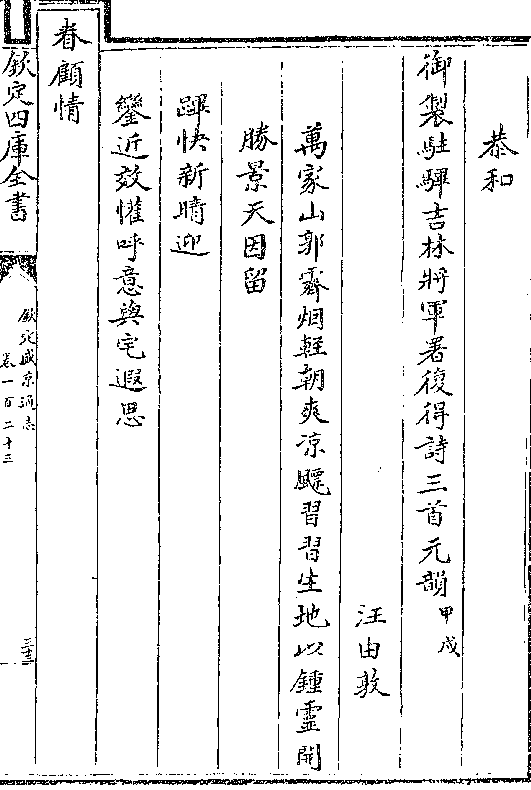 恭和
御製駐驆吉林將軍署復得詩三首元韻甲戌
汪由敦
萬家山郭霽烟輕朝爽凉颸習習生地以鍾靈開
勝景天因留
蹕快新晴迎
鑾近效懽呼意與宅遐思
眷顧情
欽定四庫全書
欽定盛京通志
卷一百二十三
三十三